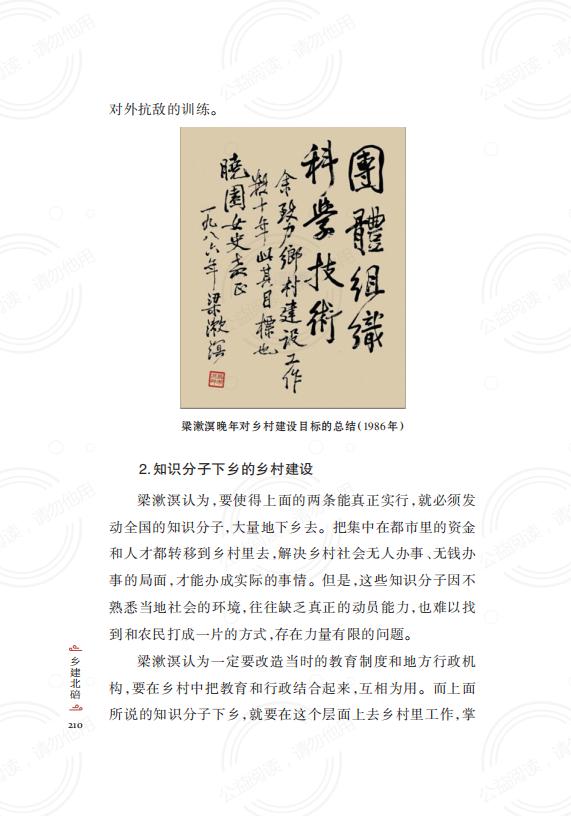 对外抗敌的训练。
團體組織
科學技術
余致力鄉村建設工作
数十年此其目標也
曉園女史教正
一九八六年 梁漱溟
梁漱溟晚年对乡村建设目标的总结(1986年)
2.知识分子下乡的乡村建设
梁漱溟认为,要使得上面的两条能真正实行,就必须发
动全国的知识分子,大量地下乡去。把集中在都市里的资金
和人才都转移到乡村里去,解决乡村社会无人办事、无钱办
事的局面,才能办成实际的事情。但是,这些知识分子因不
熟悉当地社会的环境,往往缺乏真正的动员能力,也难以找
到和农民打成一片的方式,存在力量有限的问题。
梁漱溟认为一定要改造当时的教育制度和地方行政机
构,要在乡村中把教育和行政结合起来,互相为用。而上面
所说的知识分子下乡,就要在这个层面上去乡村里工作,掌
乡建北碚
210
公益阅读,请勿他用